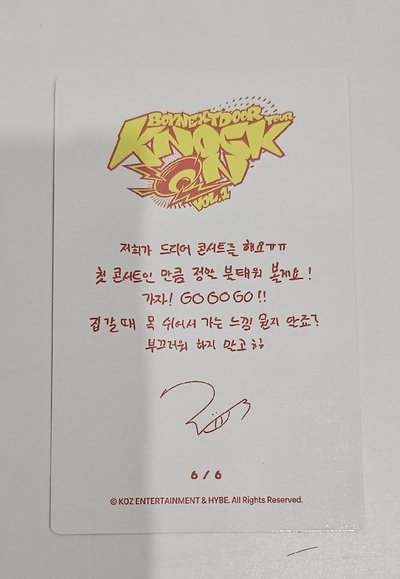 BOYNEXTDOOR TOUR
KNOCK
ON
VOL.1
저희가 드디어 콘서트를 해요ㅠㅠ
첫 콘서트인 만큼 정말 불태워 볼게요!
가자! GO GO GO!!
집갈때 목 쉬어서 가는 느낌 뭔지 알죠?
부끄러워 하지 말고ㅎㅎ
6/6
© KOZ ENTERTAINMENT & HYBE. All Rights Reserved.